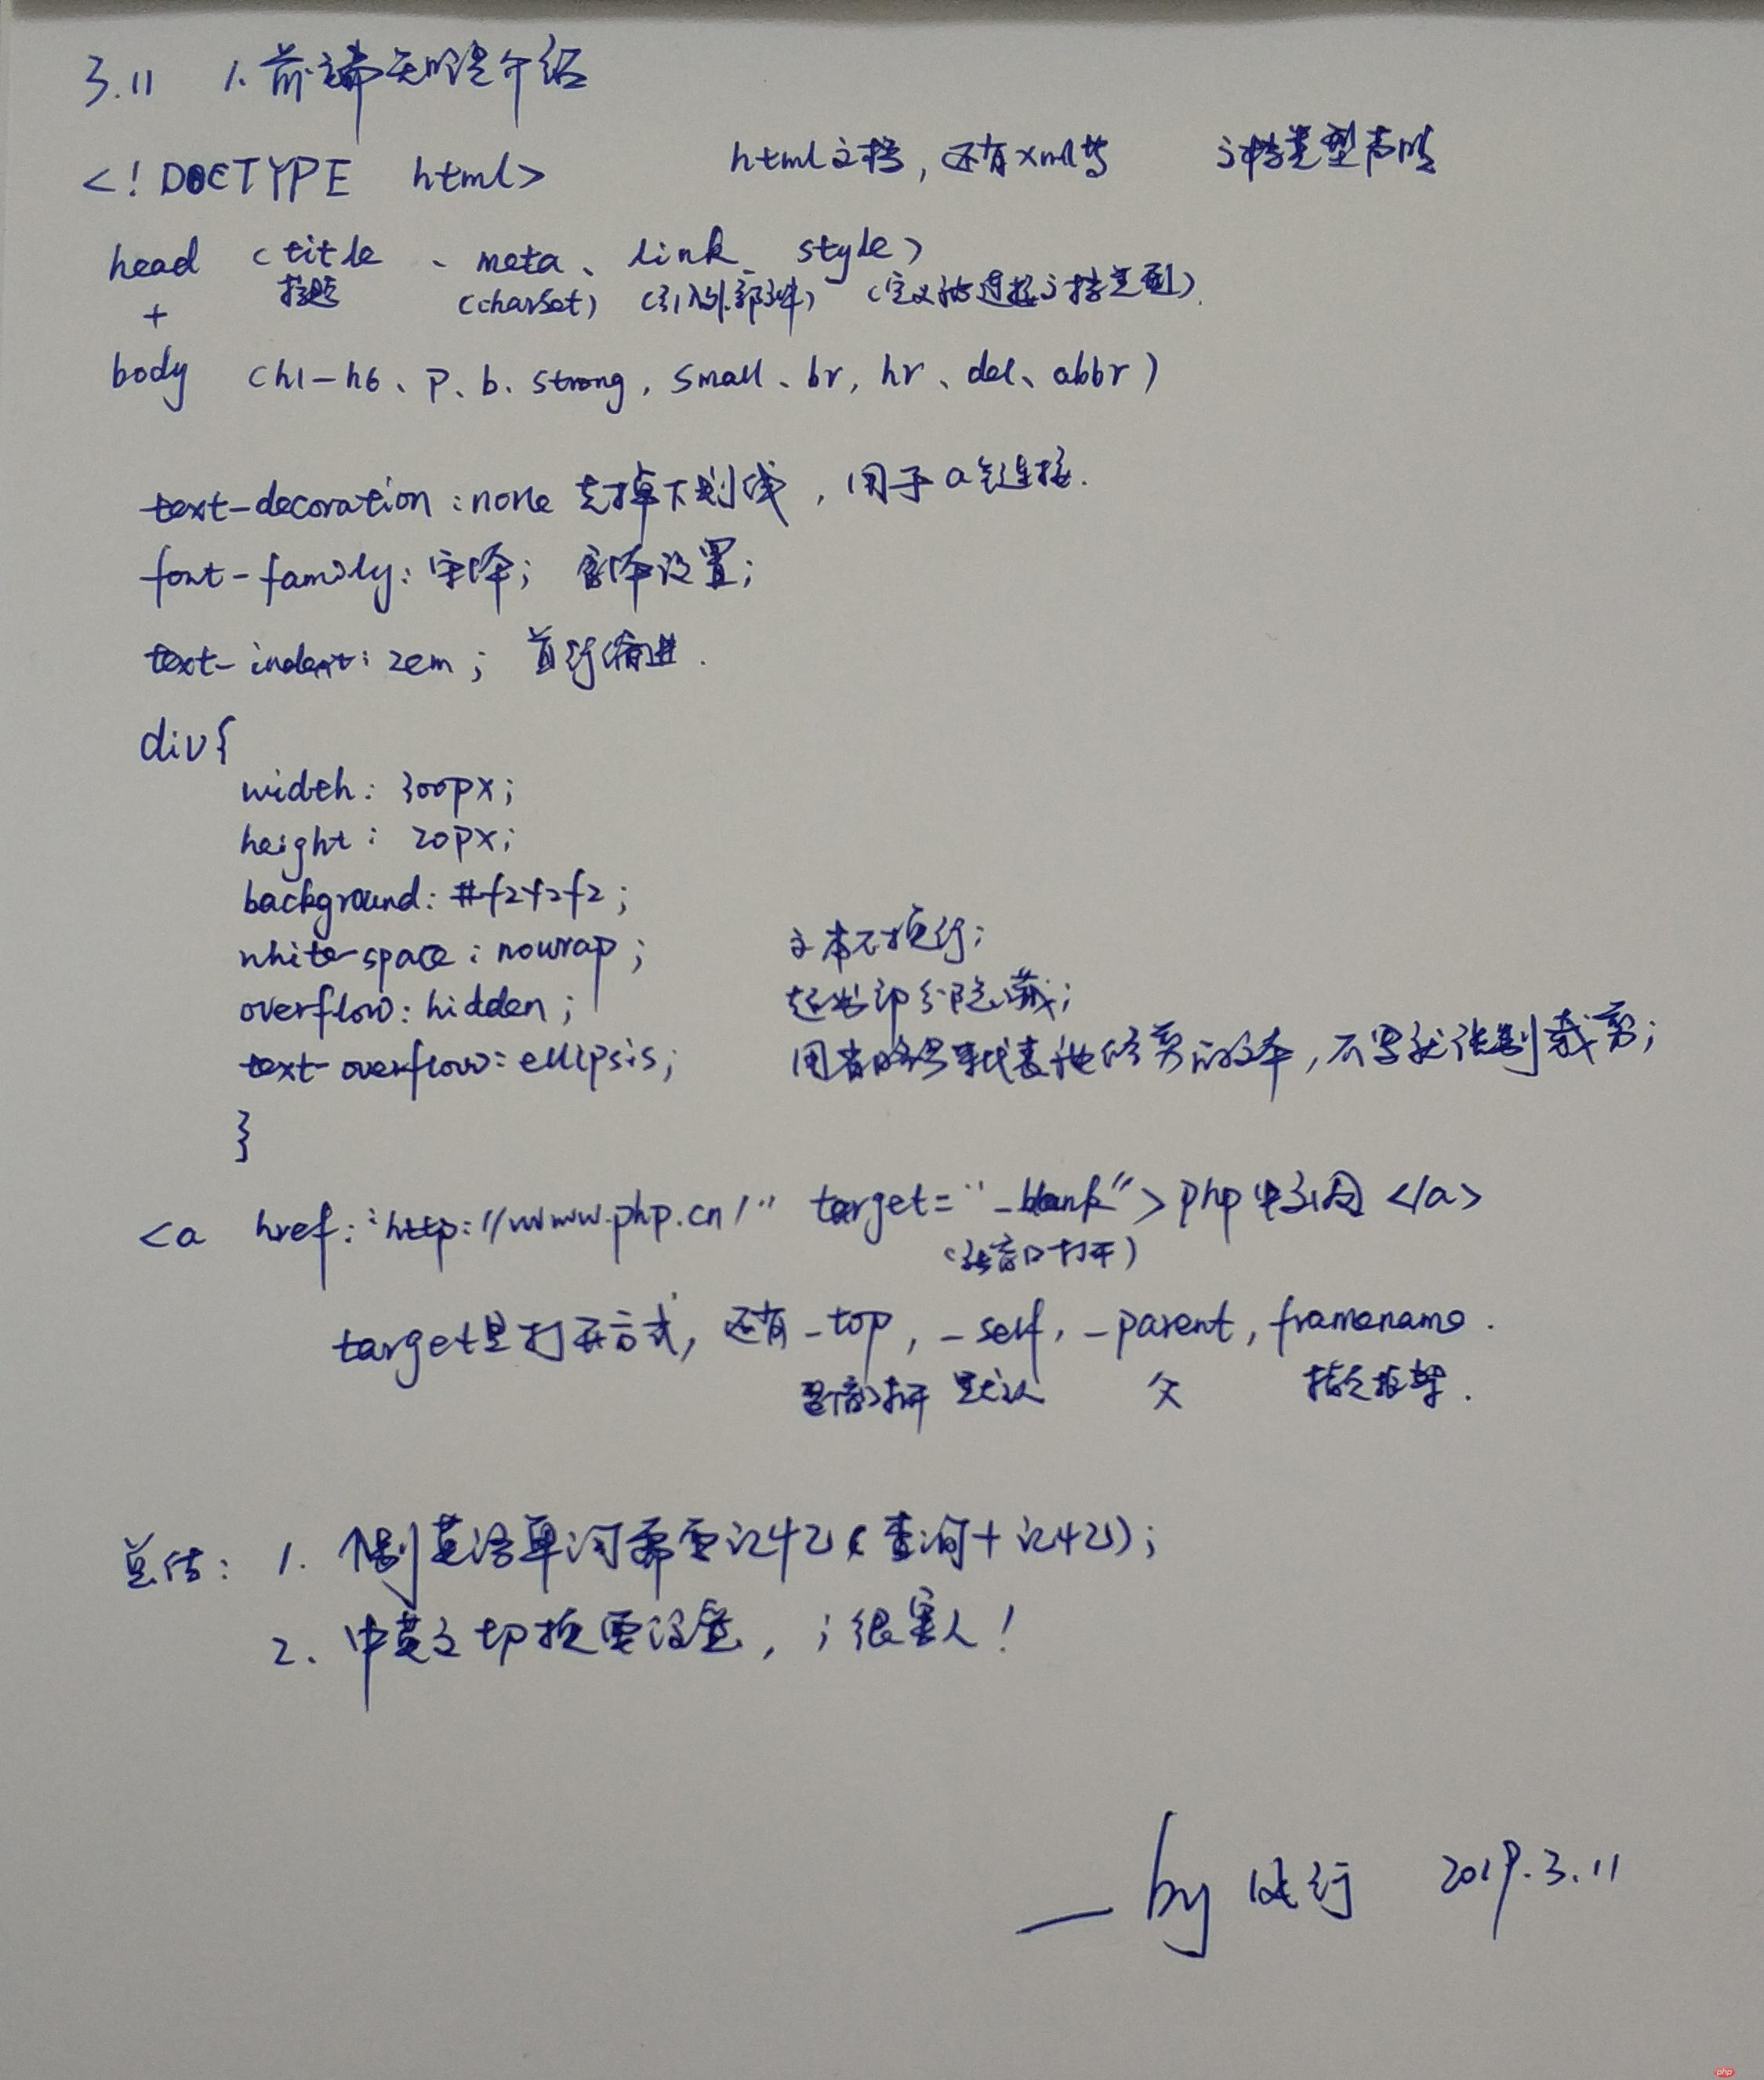 3.11 1. 前端 介绍
<!DOCTYPE html> html文档，还有xml等 文档类型声明
head (title、meta、link、style)
标题 (charset) (引入外部文件) (定义 文档类型)
+
body (h1-h6、p、b、strong，small、br，hr、del、abbr)
text-decoration:none 去掉下划线，用于a链接.
font-family:字体；字体设置；
text-indent:2em；首行缩进.
div{
width: 300px;
height: 20px;
background: #f2f2f2;
white-space: nowrap; 文本不换行；
overflow: hidden; 超出部分隐藏；
text-overflow: ellipsis; 用省略号来代表被修剪的文本，不写就 裁剪；
}
<a href:"http://www.php.cn/" target="_blank">php中文网</a>
(新窗口打开)
target是打开方式，还有_top，_self，_parent，framename.
整个窗口打开 默认 父 指定框架.
总结：1. 个别英语单词需要记忆(查询+记忆)；
2. 中英文切换要设置，；很害人！
— by 健行 2019.3.11
php